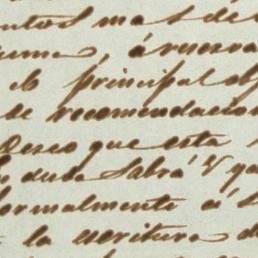 mas de
á reserva
principal ob
de recomendacion
Deseo que esta
duda Sabrá V ya
formalmente á
la escritura de